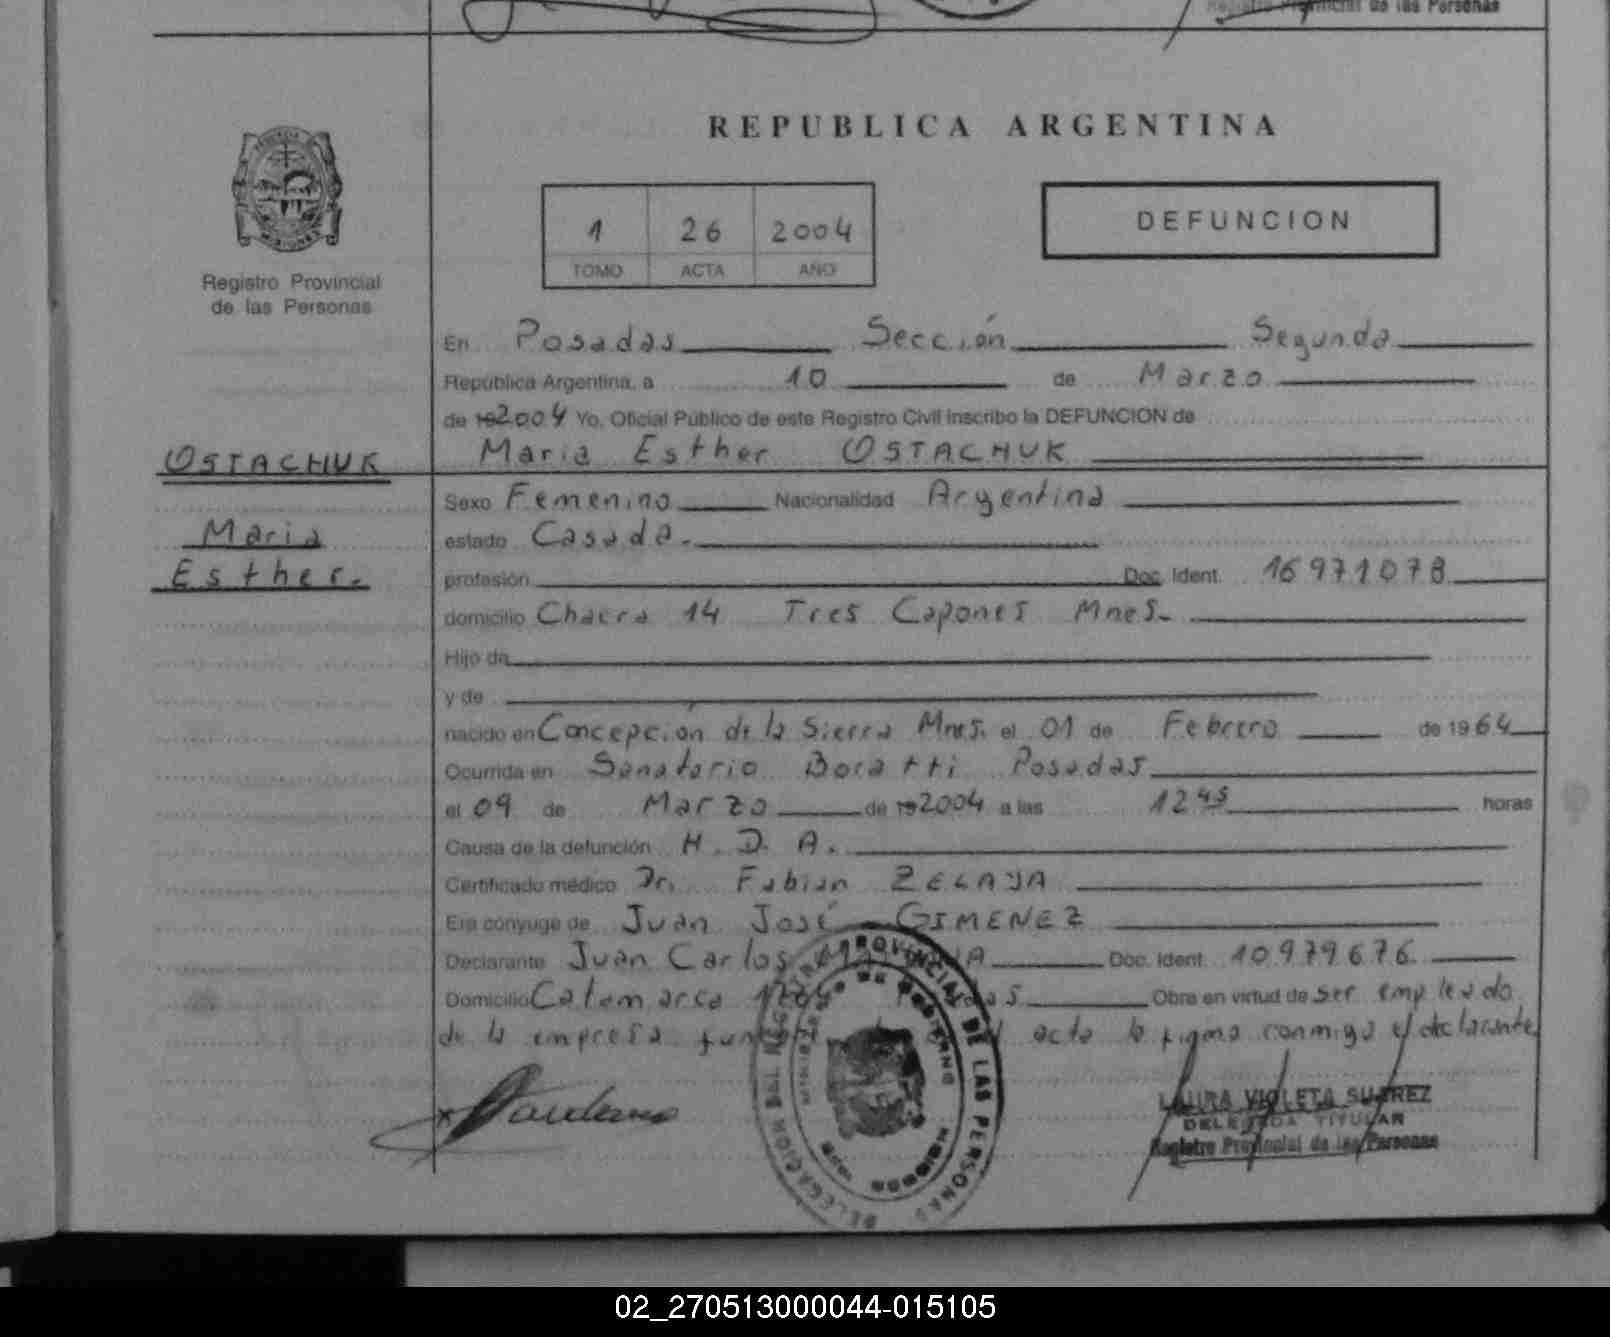 Registro Provincial de las Personas
REPUBLICA ARGENTINA
1 26 2004
TOMO ACTA AÑO
DEFUNCION
Registro Provincial
de las Personas
En Posadas Sección Segunda
República Argentina, a 10 de Marzo
de 192004 Yo, Oficial Público de este Registro Civil inscribo la DEFUNCION de
OSTACHUK
Maria
Esther.
Maria Esther OSTACHUK
Sexo Femenino Nacionalidad Argentina
estado Casada.
profesión Doc. Ident. 16971078
domicilio Chacra 14 Tres Capones Mnes.
Hijo de
y de
nacido en Concepción de la Sierra Mnes. el 01 de Febrero de 1964
Ocurrida en Sanatorio Boratti Posadas
el 09 de Marzo de 192004 a las 12 45 horas
Causa de la defunción H. D. A.
Certificado médico Dr. Fabian ZELAYA
Era cónyuge de Juan José GIMENEZ
Declarante Juan Carlos Doc. Ident. 10979676
Domicilio Catamarca Obra en virtud de ser empleado
de la empresa acta la firma conmigo el declarante
DELEGACION DEL REGISTRO PROVINCIAL DE LAS PERSONAS
LAURA VIOLETA SUAREZ
DELEGADA TITULAR
Registro Provincial de las Personas
02_270513000044-015105